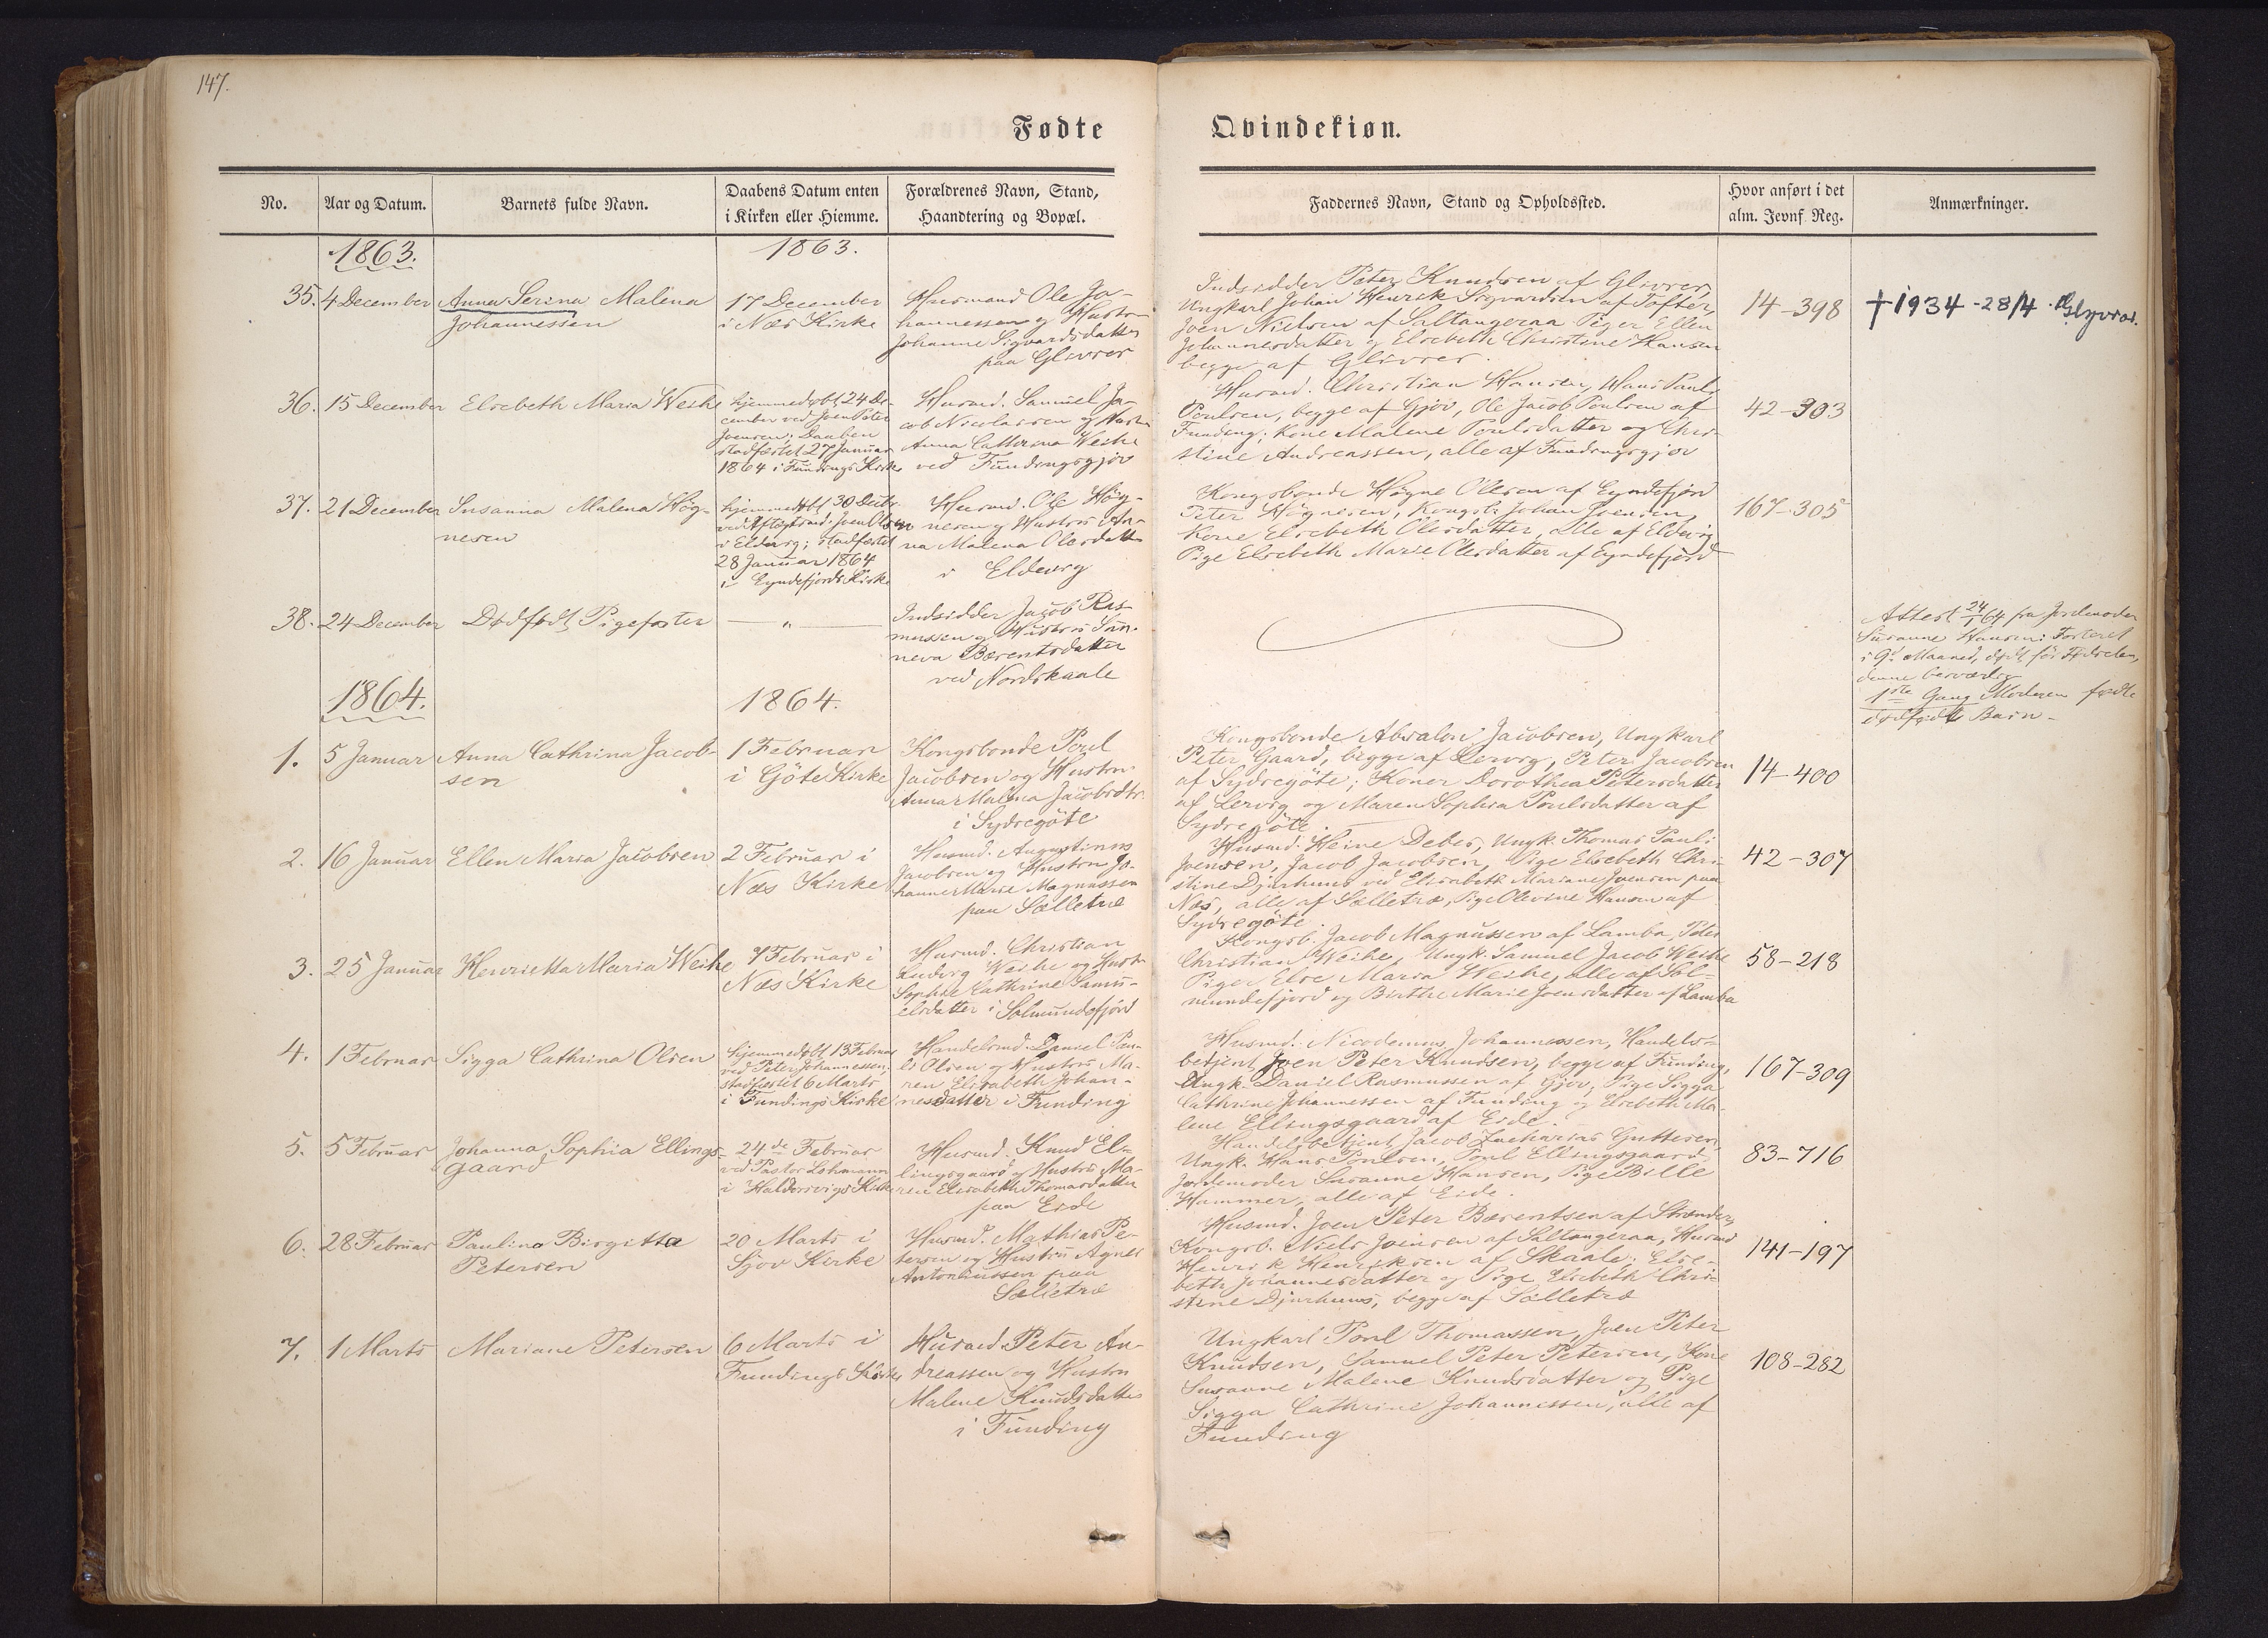 147.
Fødte
Qvindekiøn.
No.
Aar og Datum.
Barnets fulde Navn.
Daabens Datum enten
i Kirken eller Hiemme.
Forældrenes Navn, Stand,
Haandtering og Bopæl.
Faddernes Navn, Stand og Opholdssted.
Hvor anført i det
alm. Jevnf. Reg.
Anmærkninger.
1863.
1863.
35.
4 December
Anna Serina Malena
Johannessen
17 December
i Næs Kirke
Huusmand Ole Jo-
hannessen og Hustru
Johanne Sigvardsdatter
paa Glivrer
Indsidder Peter Knudsen af Glivrer,
Ungkarl Johan Henrik Sigvardsen af Tofter,
Joen Nielsen af Saltangeraa Piger Ellen
Johannesdatter og Elsebeth Christine Hansen
begge af Glivrer.
14-398
† 1934-28/4. Glyvrar.
36.
15 December
Elsebeth Maria Weihe
hjemmedøbt 24 De-
cember ved Joen Peter
Joensen; Daaben
stadfæstet 27 Januar
1864 i Fundings Kirke
Husmd. Samuel Ja-
cob Nicolassen og Hustru
Anna Cathrina Weihe
ved Fundingsgjov
Husmd. Christian Hansen, Hans Paul
Poulsen, begge af Gjov, Ole Jacob Poulsen af
Funding; Kone Malene Poulsdatter og Chri-
stine Andreassen, alle af Fundingsgjov
42-303
37.
21 December
Susanna Malena Høg-
nesen
hjemmedøbt 30 Decbr.
ved Aftægtsmd. Joen Olsen
i Eldevig; stadfæstet
28 Januar 1864
i Eyndefjords Kirke
Husmd. Ole Høg-
nesen og Hustru An-
na Malena Olesdatter
i Eldevig
Kongsbonde Høgne Olesen af Eyndefjord
Peter Høgnesen, Kongsb. Johan Joensen,
Kone Elsebeth Olesdatter, alle af Eldevig
Pige Elsebeth Marie Olesdatter af Eyndefjord
167-305
38.
24 December
Dødfødt Pigefoster
— „ —
Indsidder Jacob Ras-
mussen og Hustru Sun-
neva Barentsdatter
ved Nordskaale
Attest 24/1 64 fra Jordemoder
Susanne Hansen: Fosteret
i 9d Maaned, dødt før Fødselen,
denne besværlig
1ste Gang Moderen fødte
dødfødt Barn-
1864.
1864.
1.
5 Januar
Anna Cathrina Jacob-
sen
1 Februar
i Göte Kirke
Kongsbonde Poul
Jacobsen og Hustru
Anna Malena Jacobsdtr.
i Sydregöte
Kongsbonde Absalon Jacobsen, Ungkarl
Peter Gaard, begge af Lervig, Peter Jacobsen
af Sydregöte; Koner Dorothea Petersdatter
af Lervig og Maren Sophia Poulsdatter af
Sydregöte.
14-400
2.
16 Januar
Ellen Maria Jacobsen
2 Februar i
Næs Kirke
Husmd. Augustinus
Jacobsen og Hustru Jo-
hanne Marie Magnussen
paa Sælletræ
Husmd. Heine Debes, Ungk. Thomas Pauli
Joensen, Jacob Jacobsen, Pige Elsebeth Chri-
stine Djurhuus ved Elisabeth Mariane Joensen paa
Næs, alle af Sælletræ, Pige Olevine Hansen af
Sydregöte.
42-307
3.
25 Januar
Henrietta Maria Weihe
7 Februar i
Næs Kirke
Husmd. Christian
Ludvig Weihe og Hustru
Sophie Cathrine Samu-
elsdatter i Solmundefjord
Kongsb. Jacob Magnussen af Lamba, Peter
Christian Weihe, Ungk. Samuel Jacob Weihe
Piger Else Maria Weihe, alle af Sol-
mundefjord og Birthe Marie Joensdatter af Lamba
58-218
4.
1 Februar
Sigga Cathrina Olsen
hjemmedøbt 13 Februar
ved Peter Johannessen;
stadfæstet 6 Marts
i Fundings Kirke
Handelsmd. Daniel Pau-
li Olsen og Hustru Ma-
ren Elisabeth Johan-
nesdatter i Funding
Husmd. Nicodemus Johannessen, Handels-
betjent Joen Peter Knudsen, begge af Funding,
Ungk. Daniel Rasmussen af Gjov, Pige Sigga
Cathrine Johannessen af Funding og Elsebeth Ma-
lene Ellingsgaard af Eide.
167-309
5.
5 Februar
Johanna Sophia Ellings-
gaard
24de Februar
ved Pastor Lohmann
i Haldorsvigs Kirke
Husmd. Knud El-
lingsgaard og Hustru Ma-
ren Elisabeth Thomasdatter
paa Eide
Handelsbetjent Jacob Zacharias Guttesen
Ungk. Hans Poulsen, Poul Ellingsgaard,
Jordemoder Susanne Hansen, Pige Bille
Hammer, alle af Eide.
83-716
6.
28 Februar
Paulina Birgitta
Petersen
20 Marts i
Sjov Kirke
Husmd. Mathias Pe-
tersen og Hustru Agnes
Antoniussen paa
Sælletræ
Husmd. Joen Peter Barentsen af Strænder,
Kongsb. Niels Joensen af Saltangeraa, Husmd
Henrik Henriksen af Skaale; Else-
beth Johannesdatter og Pige Elsebeth Chri-
stine Djurhuus, begge af Sælletræ
141-197
7.
1 Marts
Mariane Petersen
6 Marts i
Fundings Kirke
Husmd. Peter An-
dreassen og Hustru
Malene Knudsdatter
i Funding
Ungkarl Poul Thomassen, Joen Peter
Knudsen, Samuel Peter Petersen, Kone
Susanne Malene Knudsdatter og Pige
Sigga Cathrine Johannessen, alle af
Funding
108-282